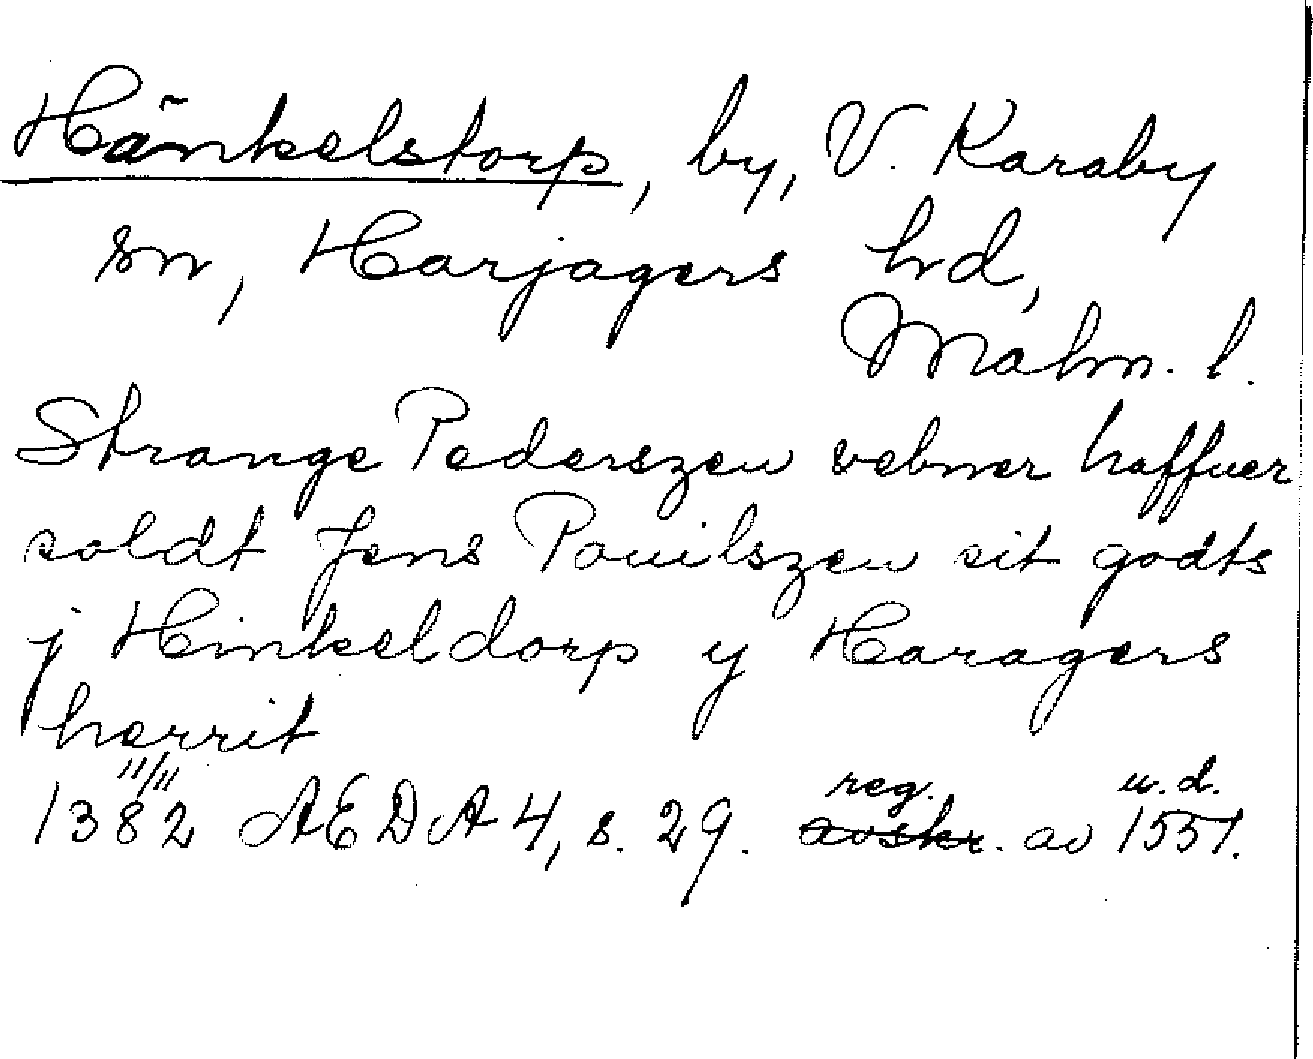 Hänkelstorp, by, V. Karaby
sn, Harjagers hd,
Malm. l.
Strange Pederszen vebner haffuer
soldt Jens Pouilszen sit godts
j Hinkeldorp y Haragers
herrit
11/11 reg. u.d.
1382 ÆDA 4, s. 29. avskr. av 1551.